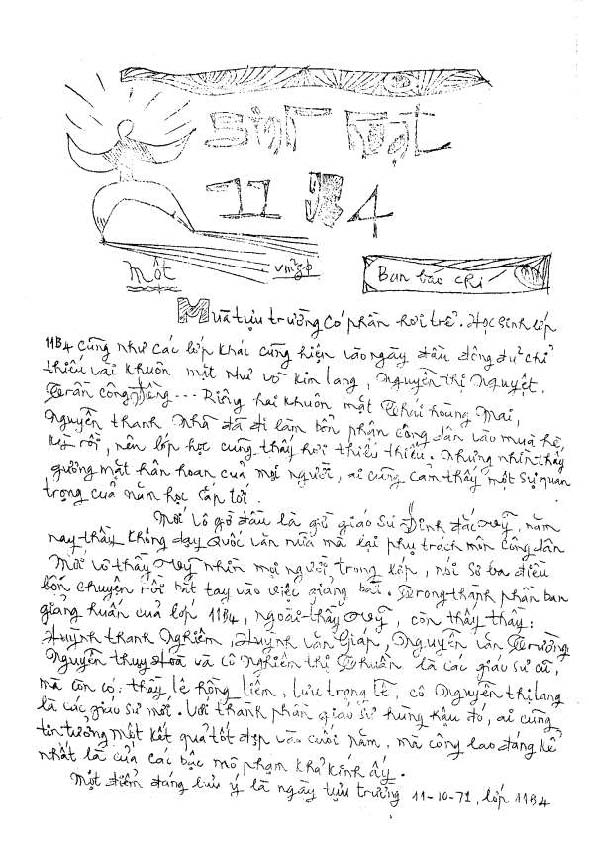 Sinh hoạt
11B4
một
Ban báo chí
Mùa tựu trường có phần hơi trể. Học sinh lớp
11B4 cũng như các lớp khác cũng hiện vào ngày đầu đông đủ chỉ
thiếu vài khuôn mặt như võ kim lang, nguyễn thị nguyệt,
Trần công ... Riêng hai khuôn mặt Thái hoàng Mai,
Nguyễn thanh Nhã đã đi làm bổn phận công dân vào mùa hè,
rồi, nên lớp học cũng thấy hơi thiếu thiếu. Nhưng nhìn thấy
gương mặt hân hoan của mọi người, ai cũng cảm thấy một sự quan
trọng của năm học sắp tới.
Mới vô giờ đầu là giờ giáo sư Đinh đắc Vỹ, năm
nay thầy không dạy Quốc văn nữa mà lại phụ trách môn Công dân
Mới vô thầy Vỹ nhìn mọi người trong lớp, nói sơ ba điều
bốn chuyện rồi bắt tay vào việc giảng bài. Trong thành phần ban
giảng huấn của lớp 11B4, ngoài thầy Vỹ, còn thấy thầy:
Huỳnh thanh Nghiêm, Huỳnh văn Giáp, Nguyễn văn Trường
Nguyễn thuỵ Hoà và Cô Nghiêm thị Thuần là các giáo sư cũ,
mà còn có: thầy lê hồng liêm, lưu trọng lễ, cô Nguyễn thị lang
là các giáo sư mới. Với thành phần giáo sư hùng hậu đó, ai cũng
tin tưởng một kết quả tốt đẹp vào cuối năm, mà công lao đáng kể
nhất là của các bậc mô phạm khả kính ấy.
Một điểm đáng lưu ý là ngày tựu trường 11-10-71, lớp 11B4